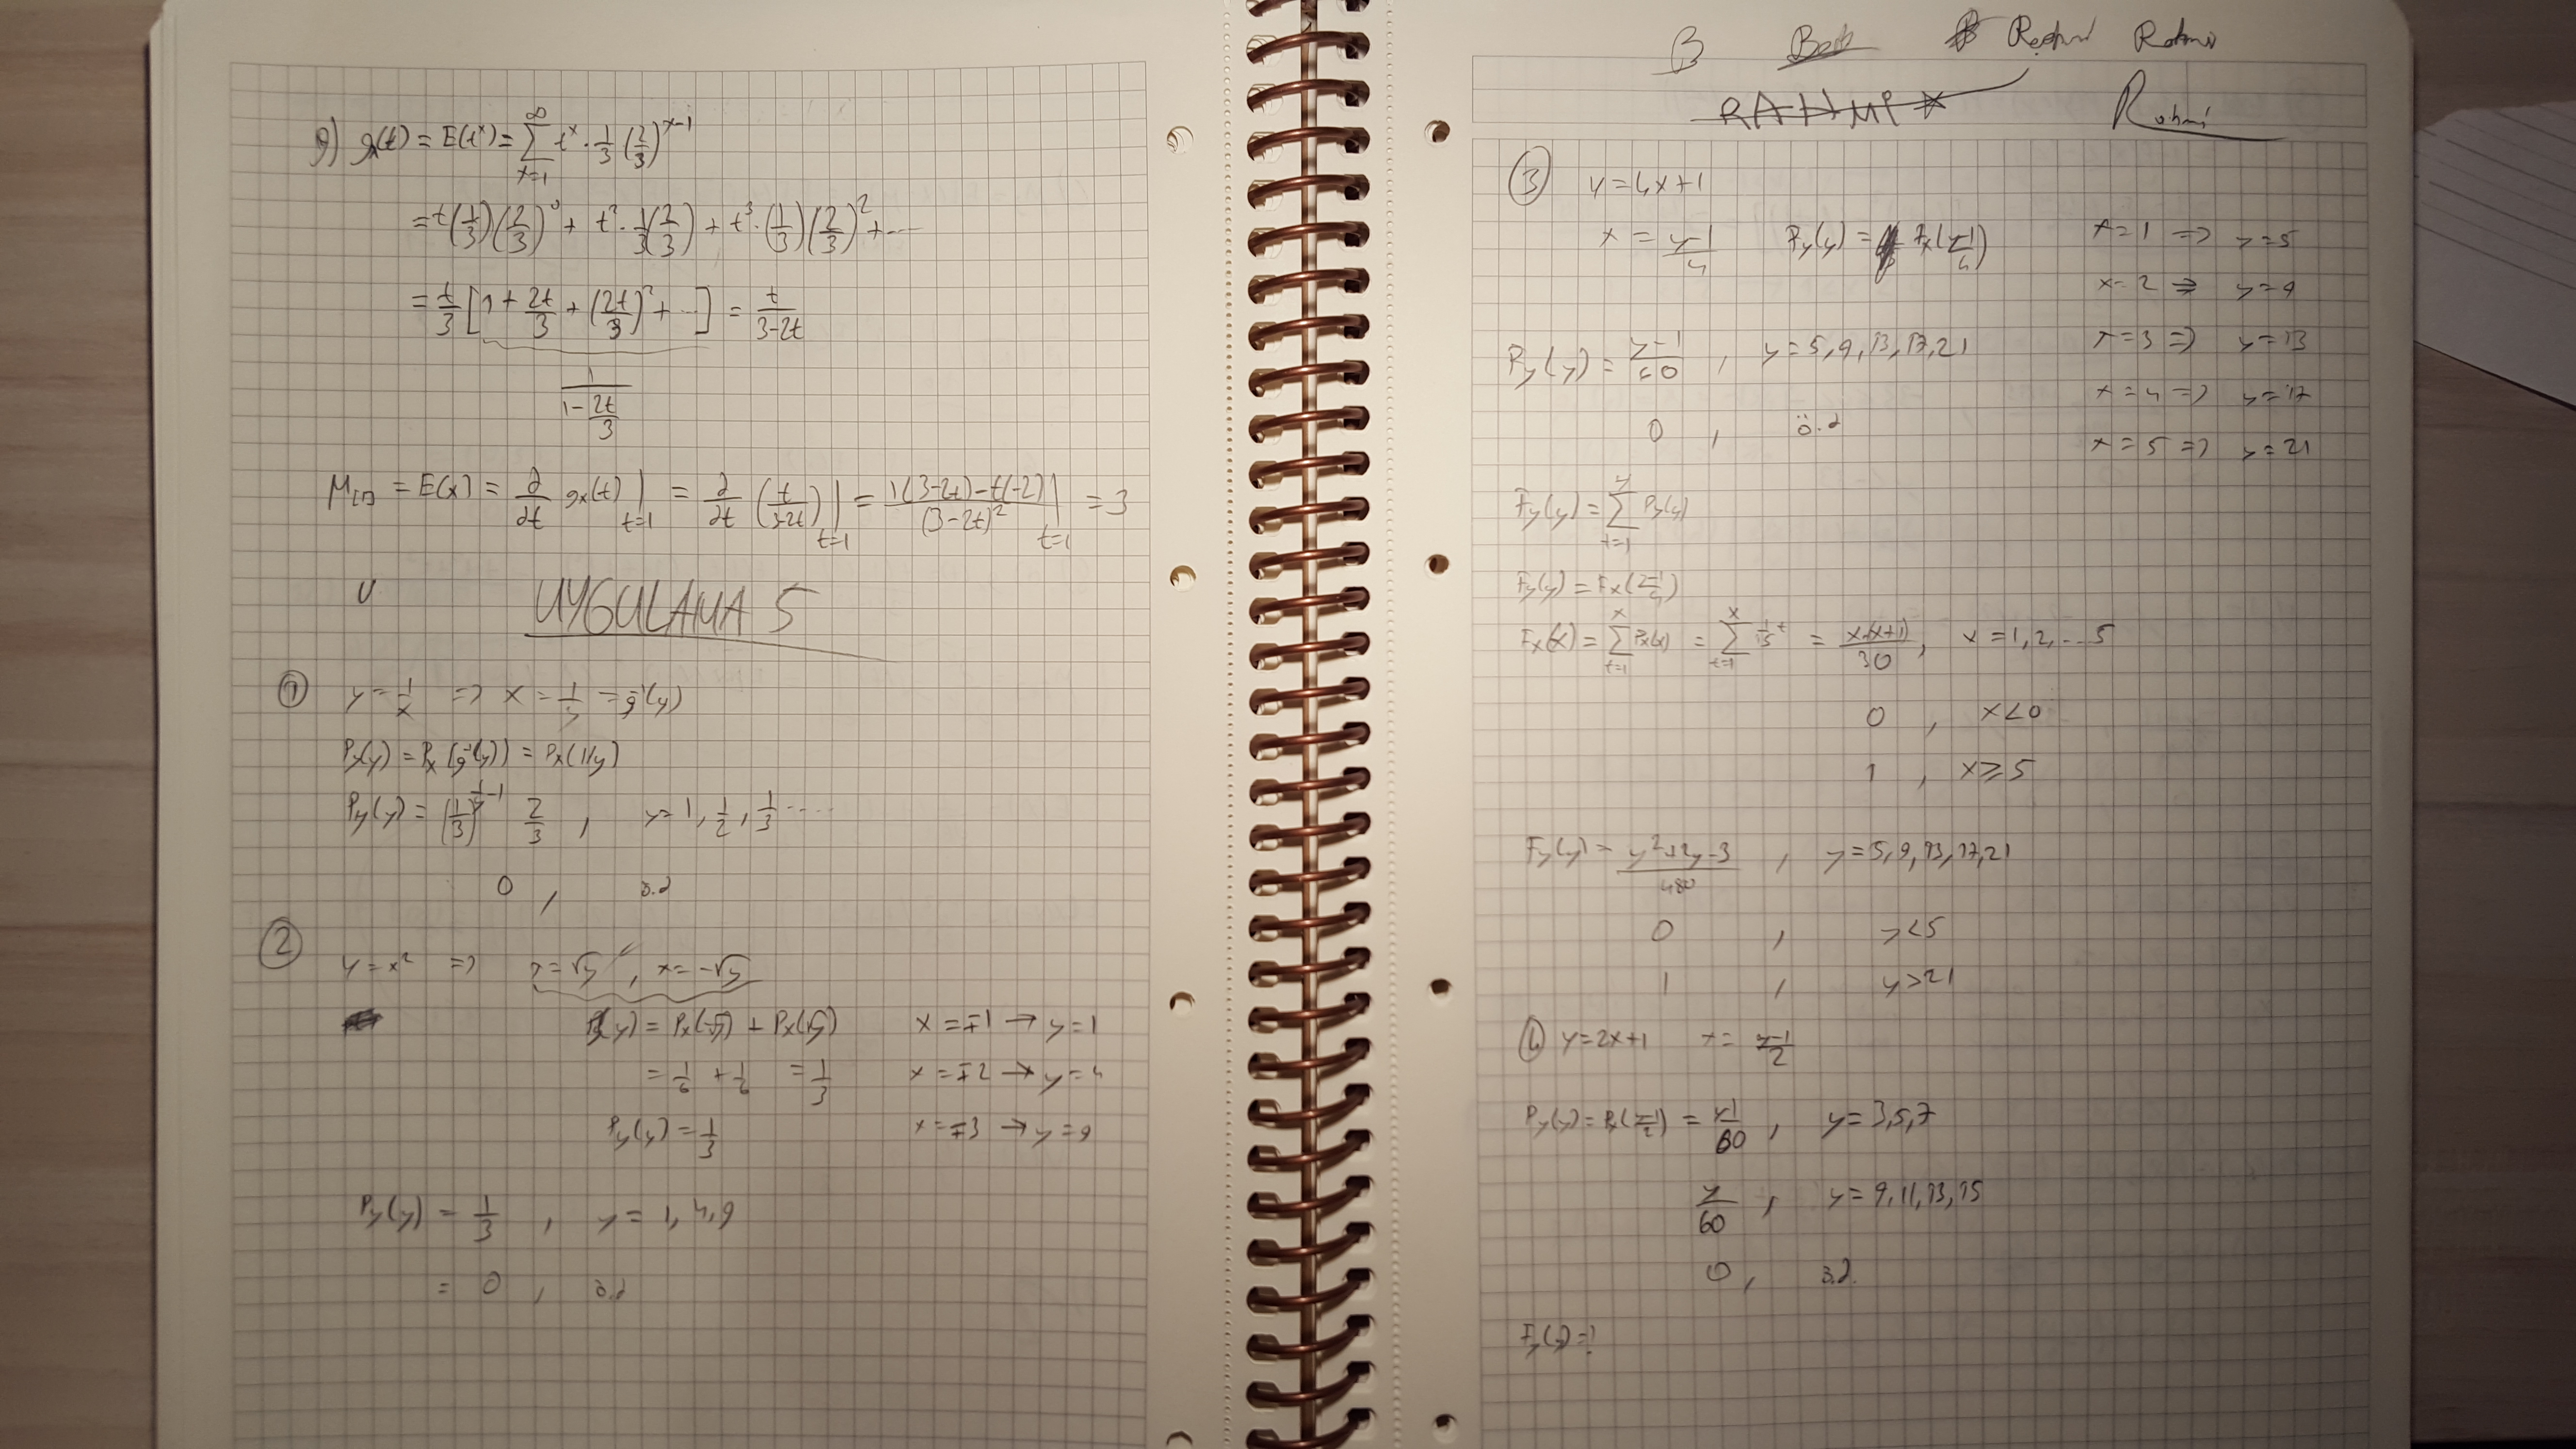 g) gx(t) = E(t^x) = ∑_{x=1}^{∞} t^x · 1/3 (2/3)^{x-1}
= t(1/3)(2/3)^0 + t^2 · 1/3(2/3) + t^3 · (1/3)(2/3)^2 + ...
= t/3 [1 + 2t/3 + (2t/3)^2 + ...] = t/(3-2t)
1/(1 - 2t/3)
M[1] = E(x) = ∂/∂t gx(t)|t=1 = ∂/∂t (t/(3-2t))|t=1 = (1(3-2t)-t(-2))/(3-2t)^2 |t=1 = 3
U
UYGULAMA 5
① y = 1/x => x = 1/y = g^-1(y)
Py(y) = Px(g^-1(y)) = Px(1/y)
Py(y) = (1/3)^{1/y - 1} 2/3 , y = 1, 1/2, 1/3 ....
0 , ö.d
② y = x^2 => x = √y , x = -√y
Py(y) = Px(-√y) + Px(√y) x = ∓1 → y = 1
= 1/6 + 1/6 = 1/3 x = ∓2 → y = 4
Py(y) = 1/3 x = ∓3 → y = 9
Py(y) = 1/3 , y = 1, 4, 9
= 0 , ö.d
B Rahmi
RAHMİ Rahmi
③ y = 4x+1
x = (y-1)/4 Py(y) = Px((y-1)/4) x=1 => y=5
x=2 => y=9
Py(y) = (y-1)/60 , y = 5, 9, 13, 17, 21 x=3 => y=13
x=4 => y=17
0 , ö.d
x=5 => y=21
Fy(y) = ∑_{t=1}^{y} Py(y)
Fy(y) = Fx((y-1)/4)
Fx(x) = ∑_{t=1}^{x} Px(x) = ∑_{t=1}^{x} 1/15 t = x(x+1)/30 , x = 1, 2, ... 5
0 , x<0
1 , x≥5
Fy(y) = (y^2+2y-3)/480 , y = 5, 9, 13, 17, 21
0 , y<5
1 , y>21
④ y=2x+1 x = (y-1)/2
Py(y) = Px((y-1)/2) = (y-1)/60 , y = 3,5,7
y/60 , y = 9, 11, 13, 15
0 , ö.d.
Fy(y) = ?